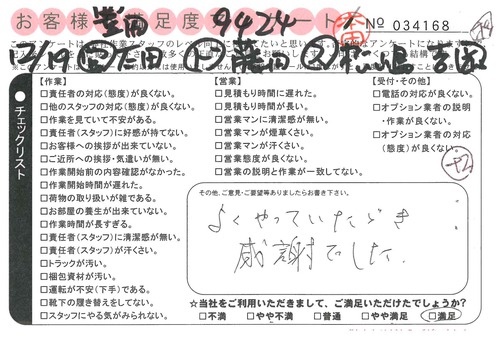 お客様満足度アンケート
豊田
9424
太田
No 034168
チェックリスト
【作業】
□責任者の対応(態度)が良くない。
□他のスタッフの対応(態度)が良くない。
□作業を見ていて不安がある。
□責任者(スタッフ)に好感が持てない。
□お客様への挨拶が出来ていない。
□ご近所への挨拶・気遣いが無い。
□作業開始前の内容確認がなかった。
□作業開始時間が遅れた。
□荷物の取り扱いが雑である。
□お部屋の養生が出来ていない。
□作業時間が長すぎる。
□責任者(スタッフ)に清潔感が無い。
□責任者(スタッフ)が汗くさい。
□トラックが汚い。
□梱包資材が汚い。
□運転が不安(下手)である。
□靴下の履き替えをしてない。
□スタッフにやる気がみられない。
【営業】
□見積もり時間に遅れた。
□見積もり時間が長い。
□営業マンに清潔感が無い。
□営業マンが煙草くさい。
□営業マンが汗くさい。
□営業態度が良くない。
□営業の説明と作業が一致してない。
【受付・その他】
□電話の対応が良くない。
□オプション業者の説明
・作業が良くない。
□オプション業者の対応
(態度)が良くない。
+2
その他、ご意見・ご要望等ありましたらお書き下さい。
よくやっていただき
感謝でした。
☆当社をご利用いただきまして、ご満足いただけたでしょうか?
□不満 □やや不満 □普通 □やや満足 □満足